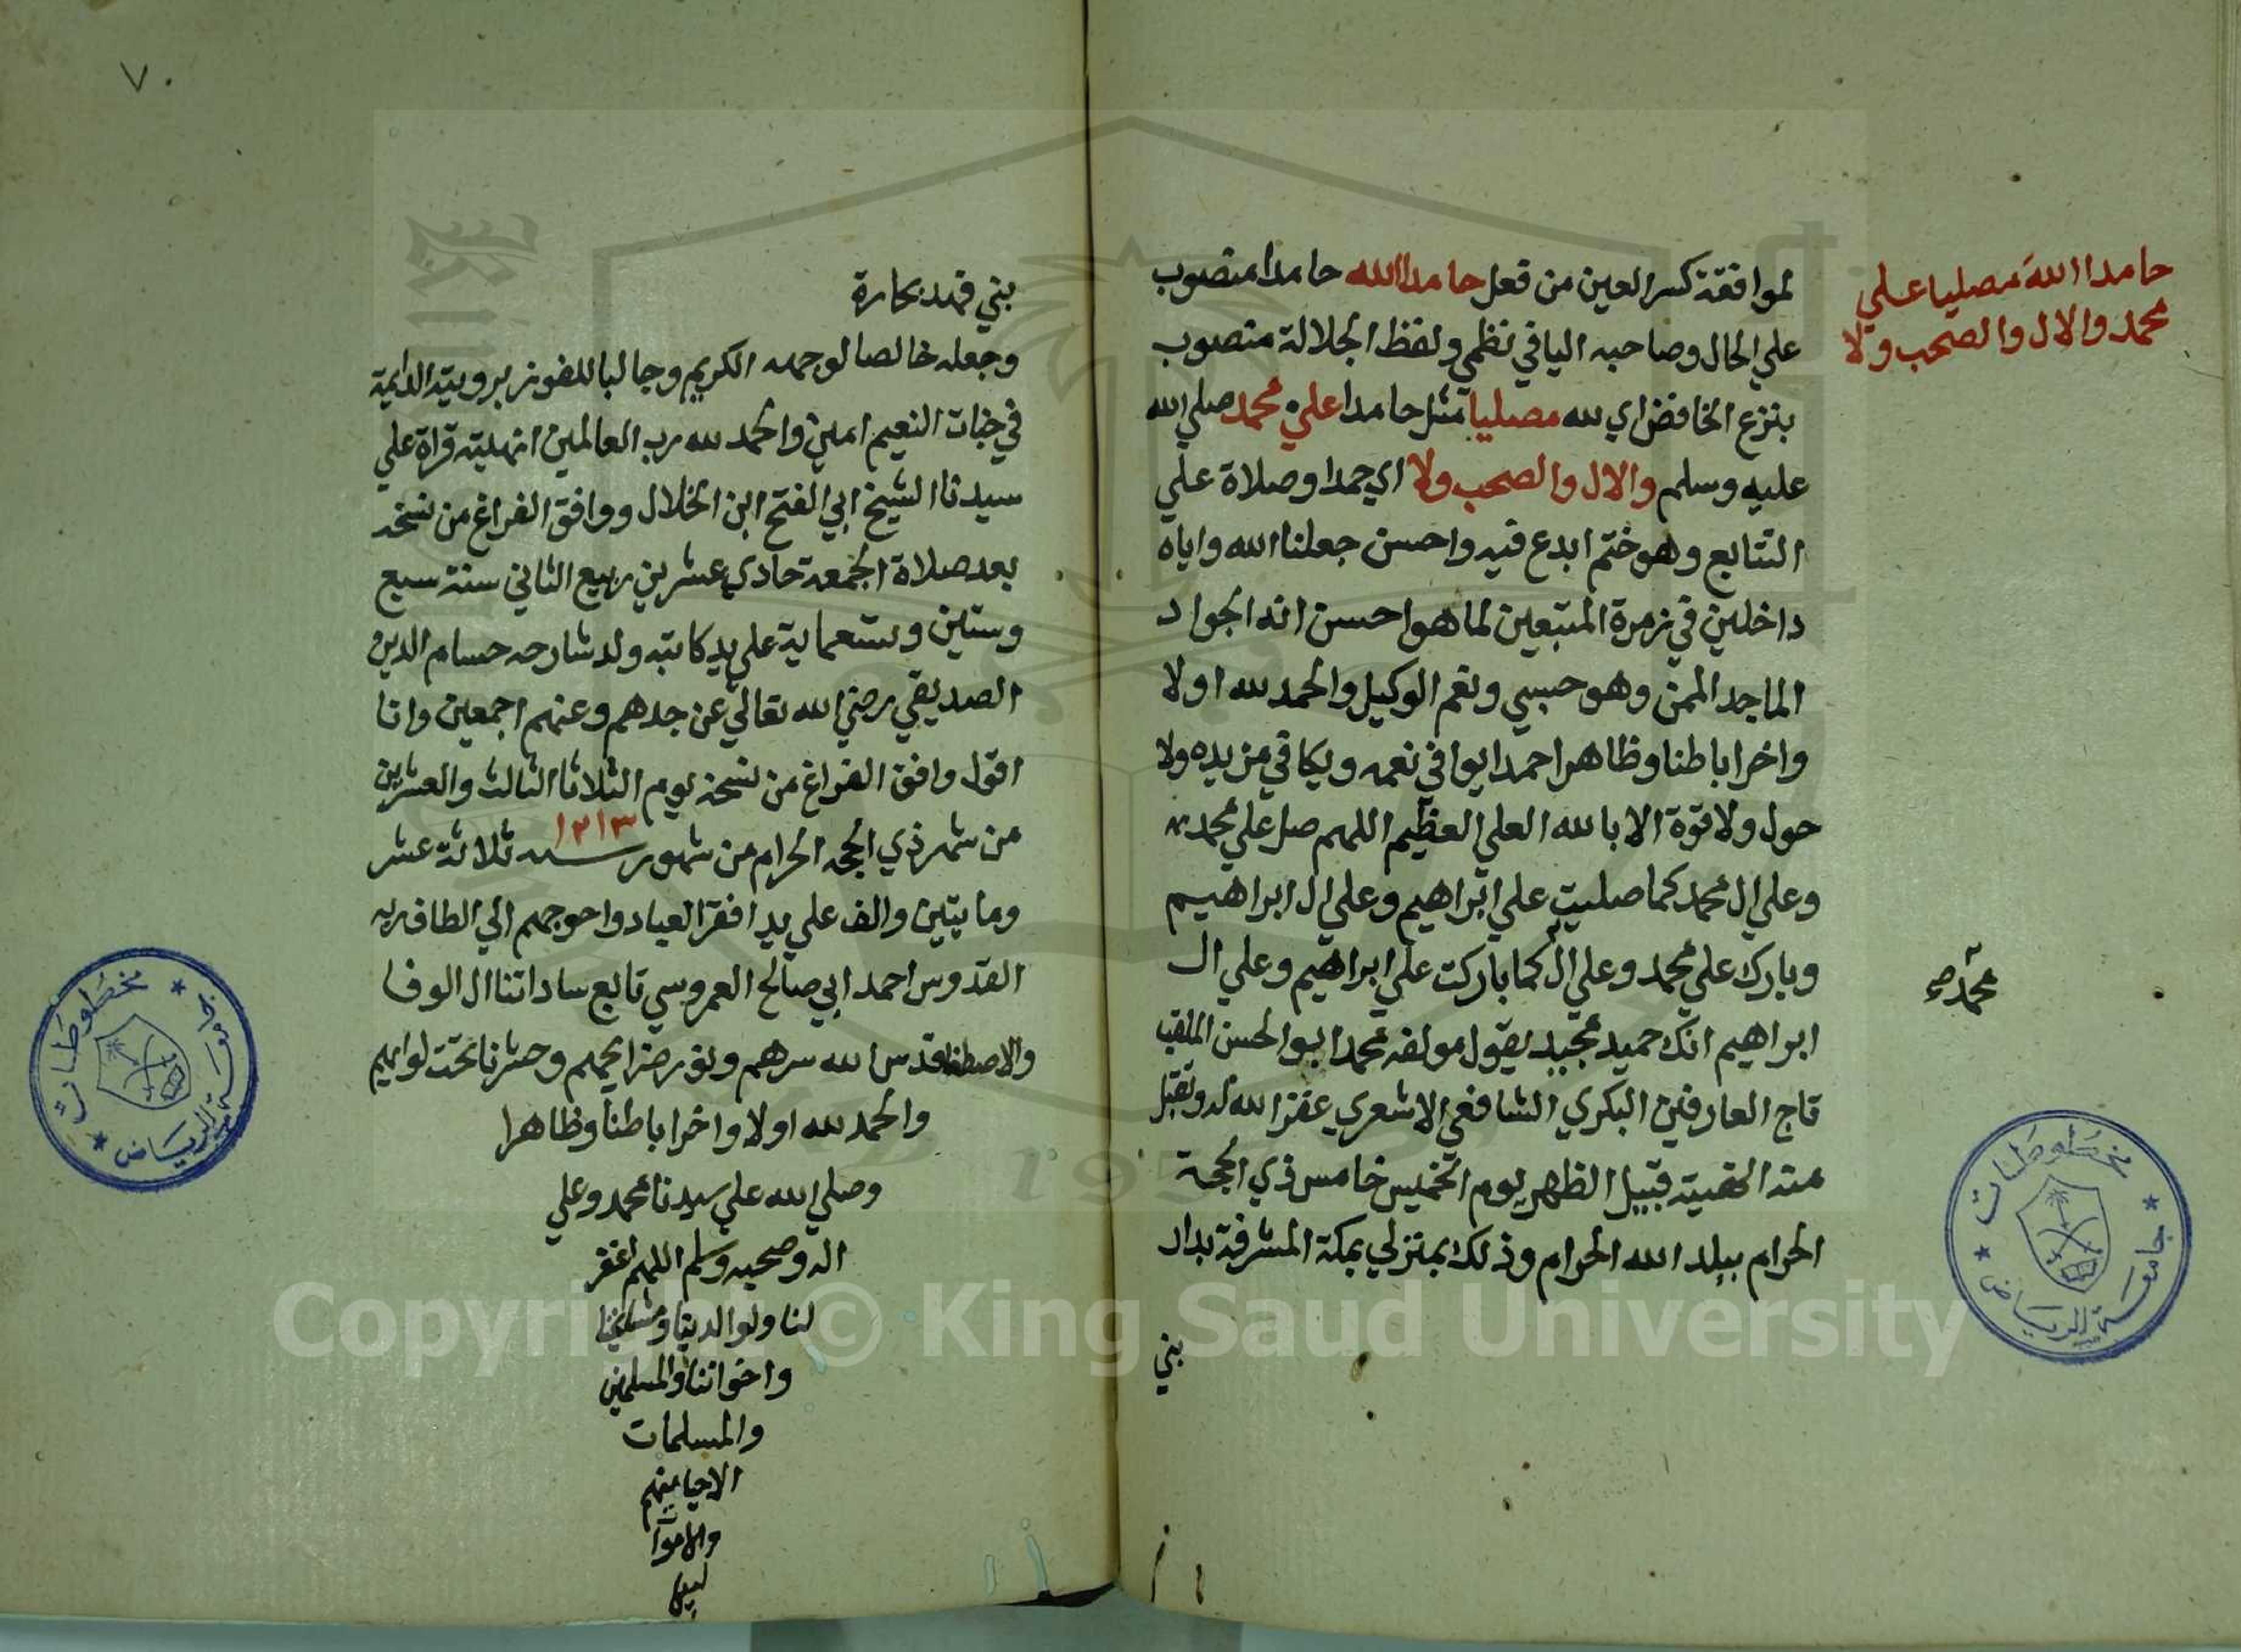 حامدا اللهَ مصليا علي
محمد والال والصحب ولا
لموافقة كسر العين من فعل حامدا الله حامدا منصوب
علي الحال وصاحبه اليا في نظمي ولفظ الجلالة منصوب
بنزع الخافض اي لله مصليا مثل حامدا علي محمد صلي الله
عليه وسلم والال والصحب ولا اي حمدا وصلاة علي
التتابع وهو ختم ابدع فيه واحسن جعلنا الله واياه
داخلين في زمرة المتبعين لما هو احسن انه الجواد
الماجد الممن وهو حسبي ونعم الوكيل والحمد لله اولا
واخرا باطنا وظاهرا حمدا يوافي نعمه ويكافي مزيده ولا
حول ولا قوة الا بالله العلي العظيم اللهم صل علي محمد
وعلي ال محمد كما صليت علي ابراهيم وعلي ال ابراهيم
وبارك علي محمد وعلي ال كما باركت علي ابراهيم وعلي ال
محمد صح
ابراهيم انك حميد مجيد يقول مولفه محمد ابو الحسن الملقب
تاج العارفين البكري الشافعي الاشعري غفر الله له وتقبل
منه انهيته قبيل الظهر يوم الخميس خامس ذي الحجة
الحرام ببلد الله الحرام وذلك بمنزلي بمكة المشرفة بدار
بني
٧٠
بني فهد بحارة
وجعله خالصا لوجهه الكريم وجالبا للفوز برويته الدايمة
في جنات النعيم امين والحمد لله رب العالمين انهيته قراة علي
سيدنا الشيخ ابي الفتح ابن الخلال ووافق الفراغ من نسخه
بعد صلاة الجمعة حادي عشرين ربيع الثاني سنة سبع
وستين وتسعماية علي يد كاتبه ولد شارحه حسام الدين
الصديقي رضي الله تعالي عن جدهم وعنهم اجمعين وانا
اقول وافق الفراغ من نسخه يوم الثلاثا الثالث والعشرين
من شهر ذي الحجه الحرام من شهور سنه ١٢١٣ ثلاثة عشر
ومايتين والف علي يد افقر العباد واحوجهم الي الطاف ربه
القدوس احمد ابي صالح العمروسي تابع ساداتنا ال الوفا
والاصطفا قدس الله سرهم ونور ضرايحهم وحشرنا تحت لوايهم
والحمد لله اولا واخرا باطنا وظاهرا
وصلي الله علي سيدنا محمد وعلي
اله وصحبه وسلم اللهم اغفر
لنا ولوالدينا ومشايخنا
واخواننا والمسلمين
والمسلمات
الاحيا منهم
والاموا
جامعة الرياض
مخطوطات
جامعة الرياض
مخطوطات
Copyright © King Saud University